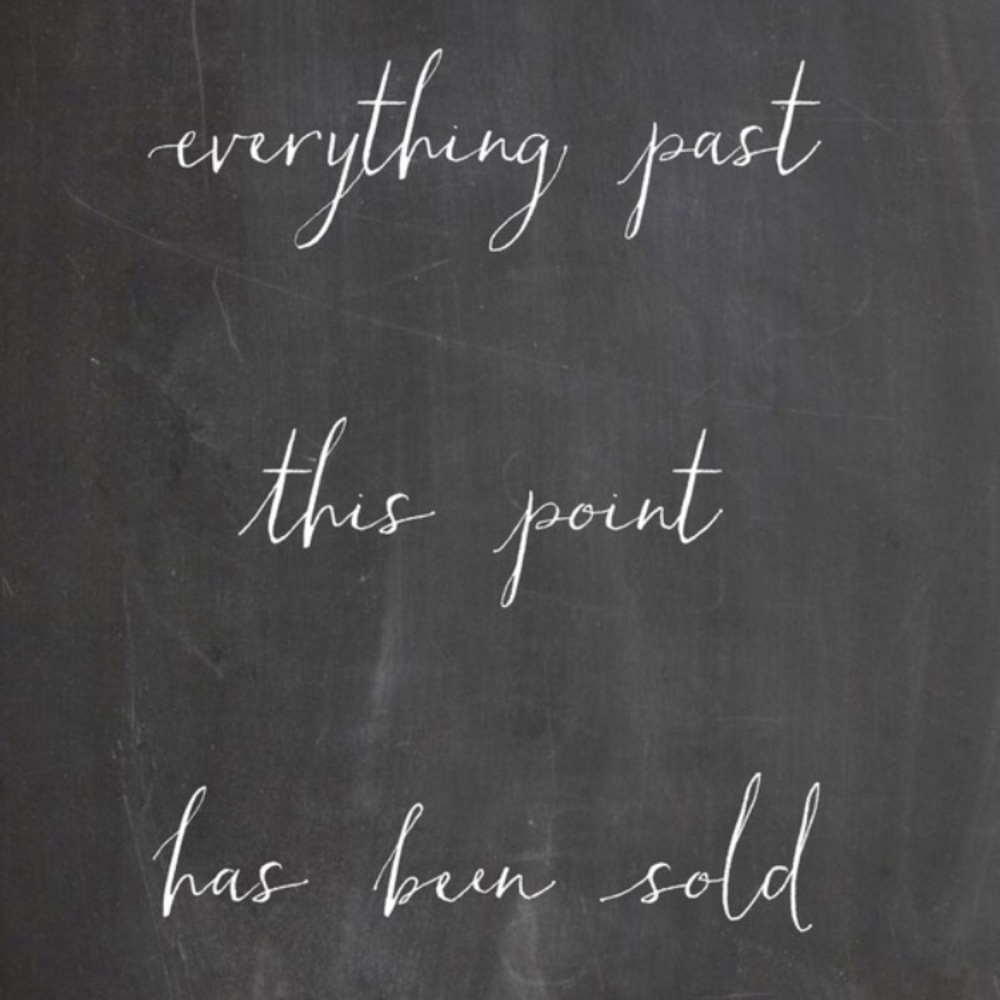 everything past
this point
has been sold